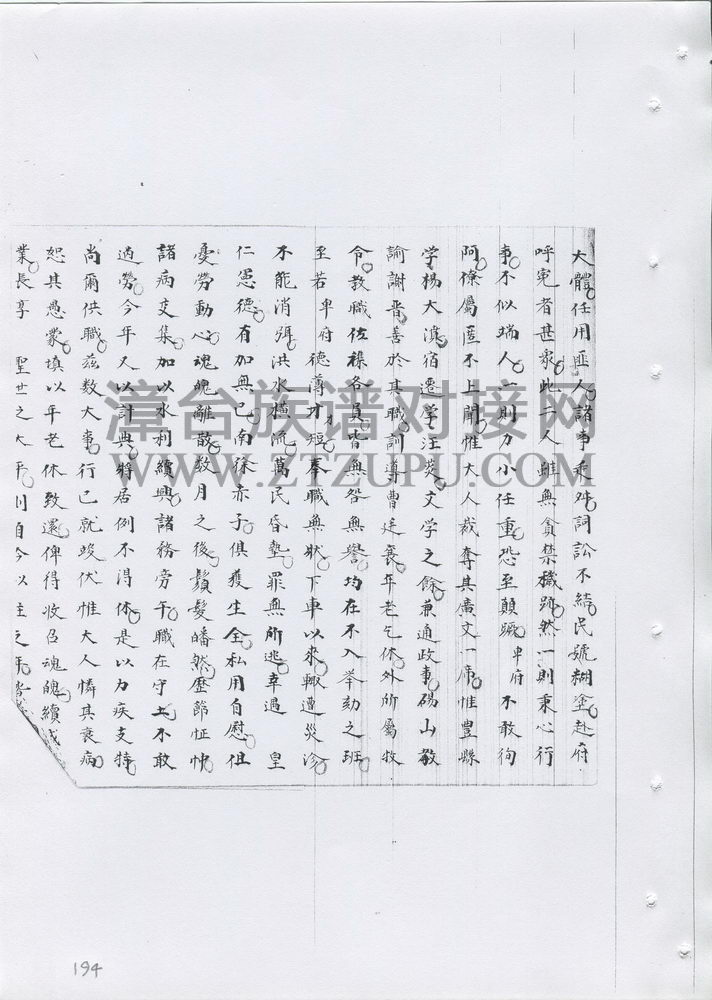 大體任用匪人諸事乖舛詞訟不結民號糊塗赴府
呼冤者甚衆此二人雖無貪禁穢跡然一則秉心行
事不似端人一則力小任重恐至顛蹶卑府不敢徇
阿僚屬匿不上聞惟大人裁奪其廣文一席惟豐縣
学楊大濱宿遷学汪荧文学之餘兼通政事碭山教
諭謝晋善於其職訓導曹廷養年老乞休外所屬牧
令教職佐襍各員皆無咎無譽均在不入举劾之班
至若卑府德薄才短奉職無狀下車以來輙遭災沴
不能消弭洪水橫流萬民昏墊罪無所逃幸遇 皇
仁憲德有加無已南徐赤子俱獲生全私用自慰但
憂勞動心魂魄離散数月之後鬚髮皤然歷節怔忡
諸病交集加以水利續興諸務旁午職在守土不敢
過勞今年又以計典將居例不得休是以力疾支持
尚爾供職兹数大事行已就竣伏惟大人憐其衰病
恕其愚蒙填以年老休致還俾得收召魂魄續
業長享 聖世之太平則自今以往之年皆
漳台族谱对接网
WWW.ZTZUPU.COM
194